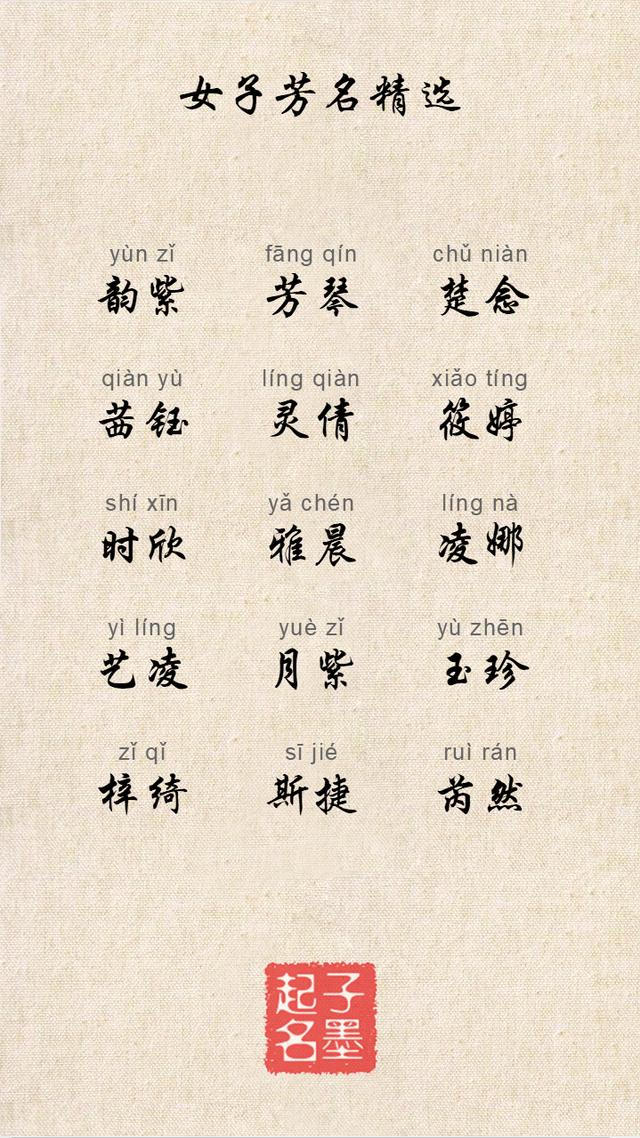 女子芳名精选
yùn zǐ fāng qín chǔ niàn
韵紫 芳琴 楚念
qiàn yù líng qiàn xiǎo tíng
茜钰 灵倩 筱婷
shí xīn yǎ chén líng nà
时欣 雅晨 凌娜
yì líng yuè zǐ yù zhēn
艺凌 月紫 玉珍
zǐ qǐ sī jié ruì rán
梓绮 斯捷 芮然
子墨
起名